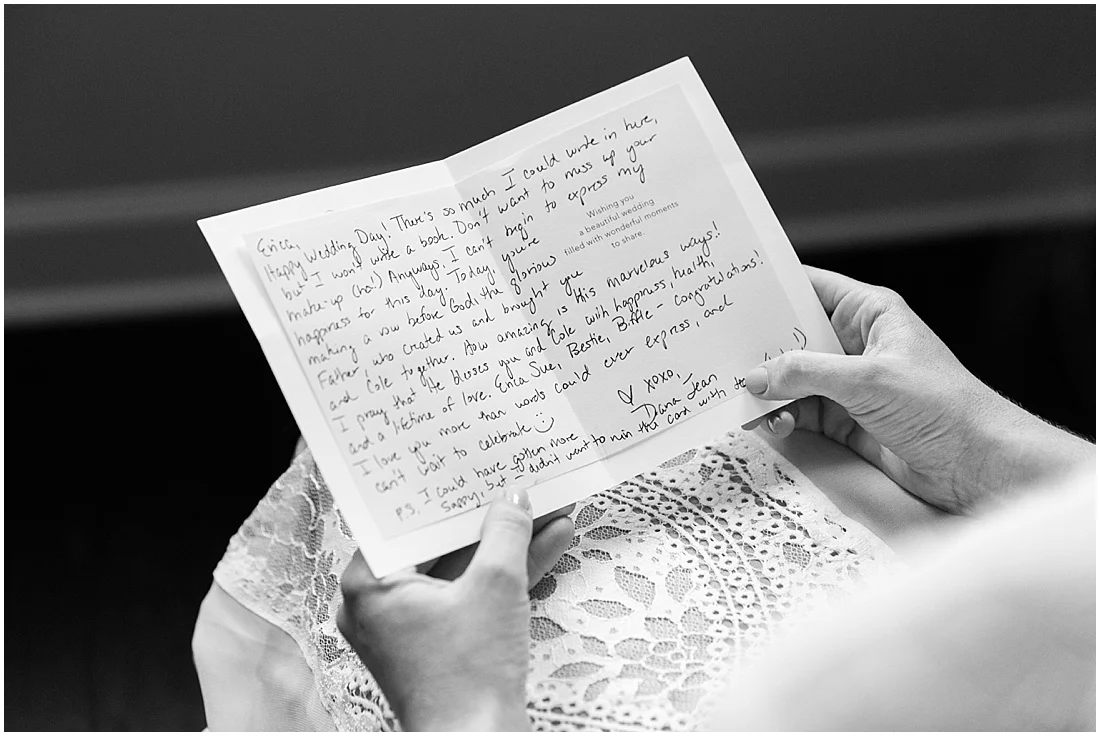 Erica,
Happy Wedding Day! There's so much I could write in here,
but I won't write a book. Don't want to mess up your
make-up (ha!) Anyways, I can't begin to express my
happiness for this day. Today, you're
making a vow before God, the glorious
Father, who created us and brought you
and Cole together. How amazing is His marvelous ways!
I pray that He blesses you and Cole with happiness, health,
and a lifetime of love. Erica Sue, Bestie, Biffle - congratulations!
I love you more than words could ever express, and
can't wait to celebrate :)
♡ xoxo,
Dana Jean
P.S. - I could have gotten more
sappy, but I didn't want to ruin the card with
Wishing you
a beautiful wedding
filled with wonderful moments
to share.